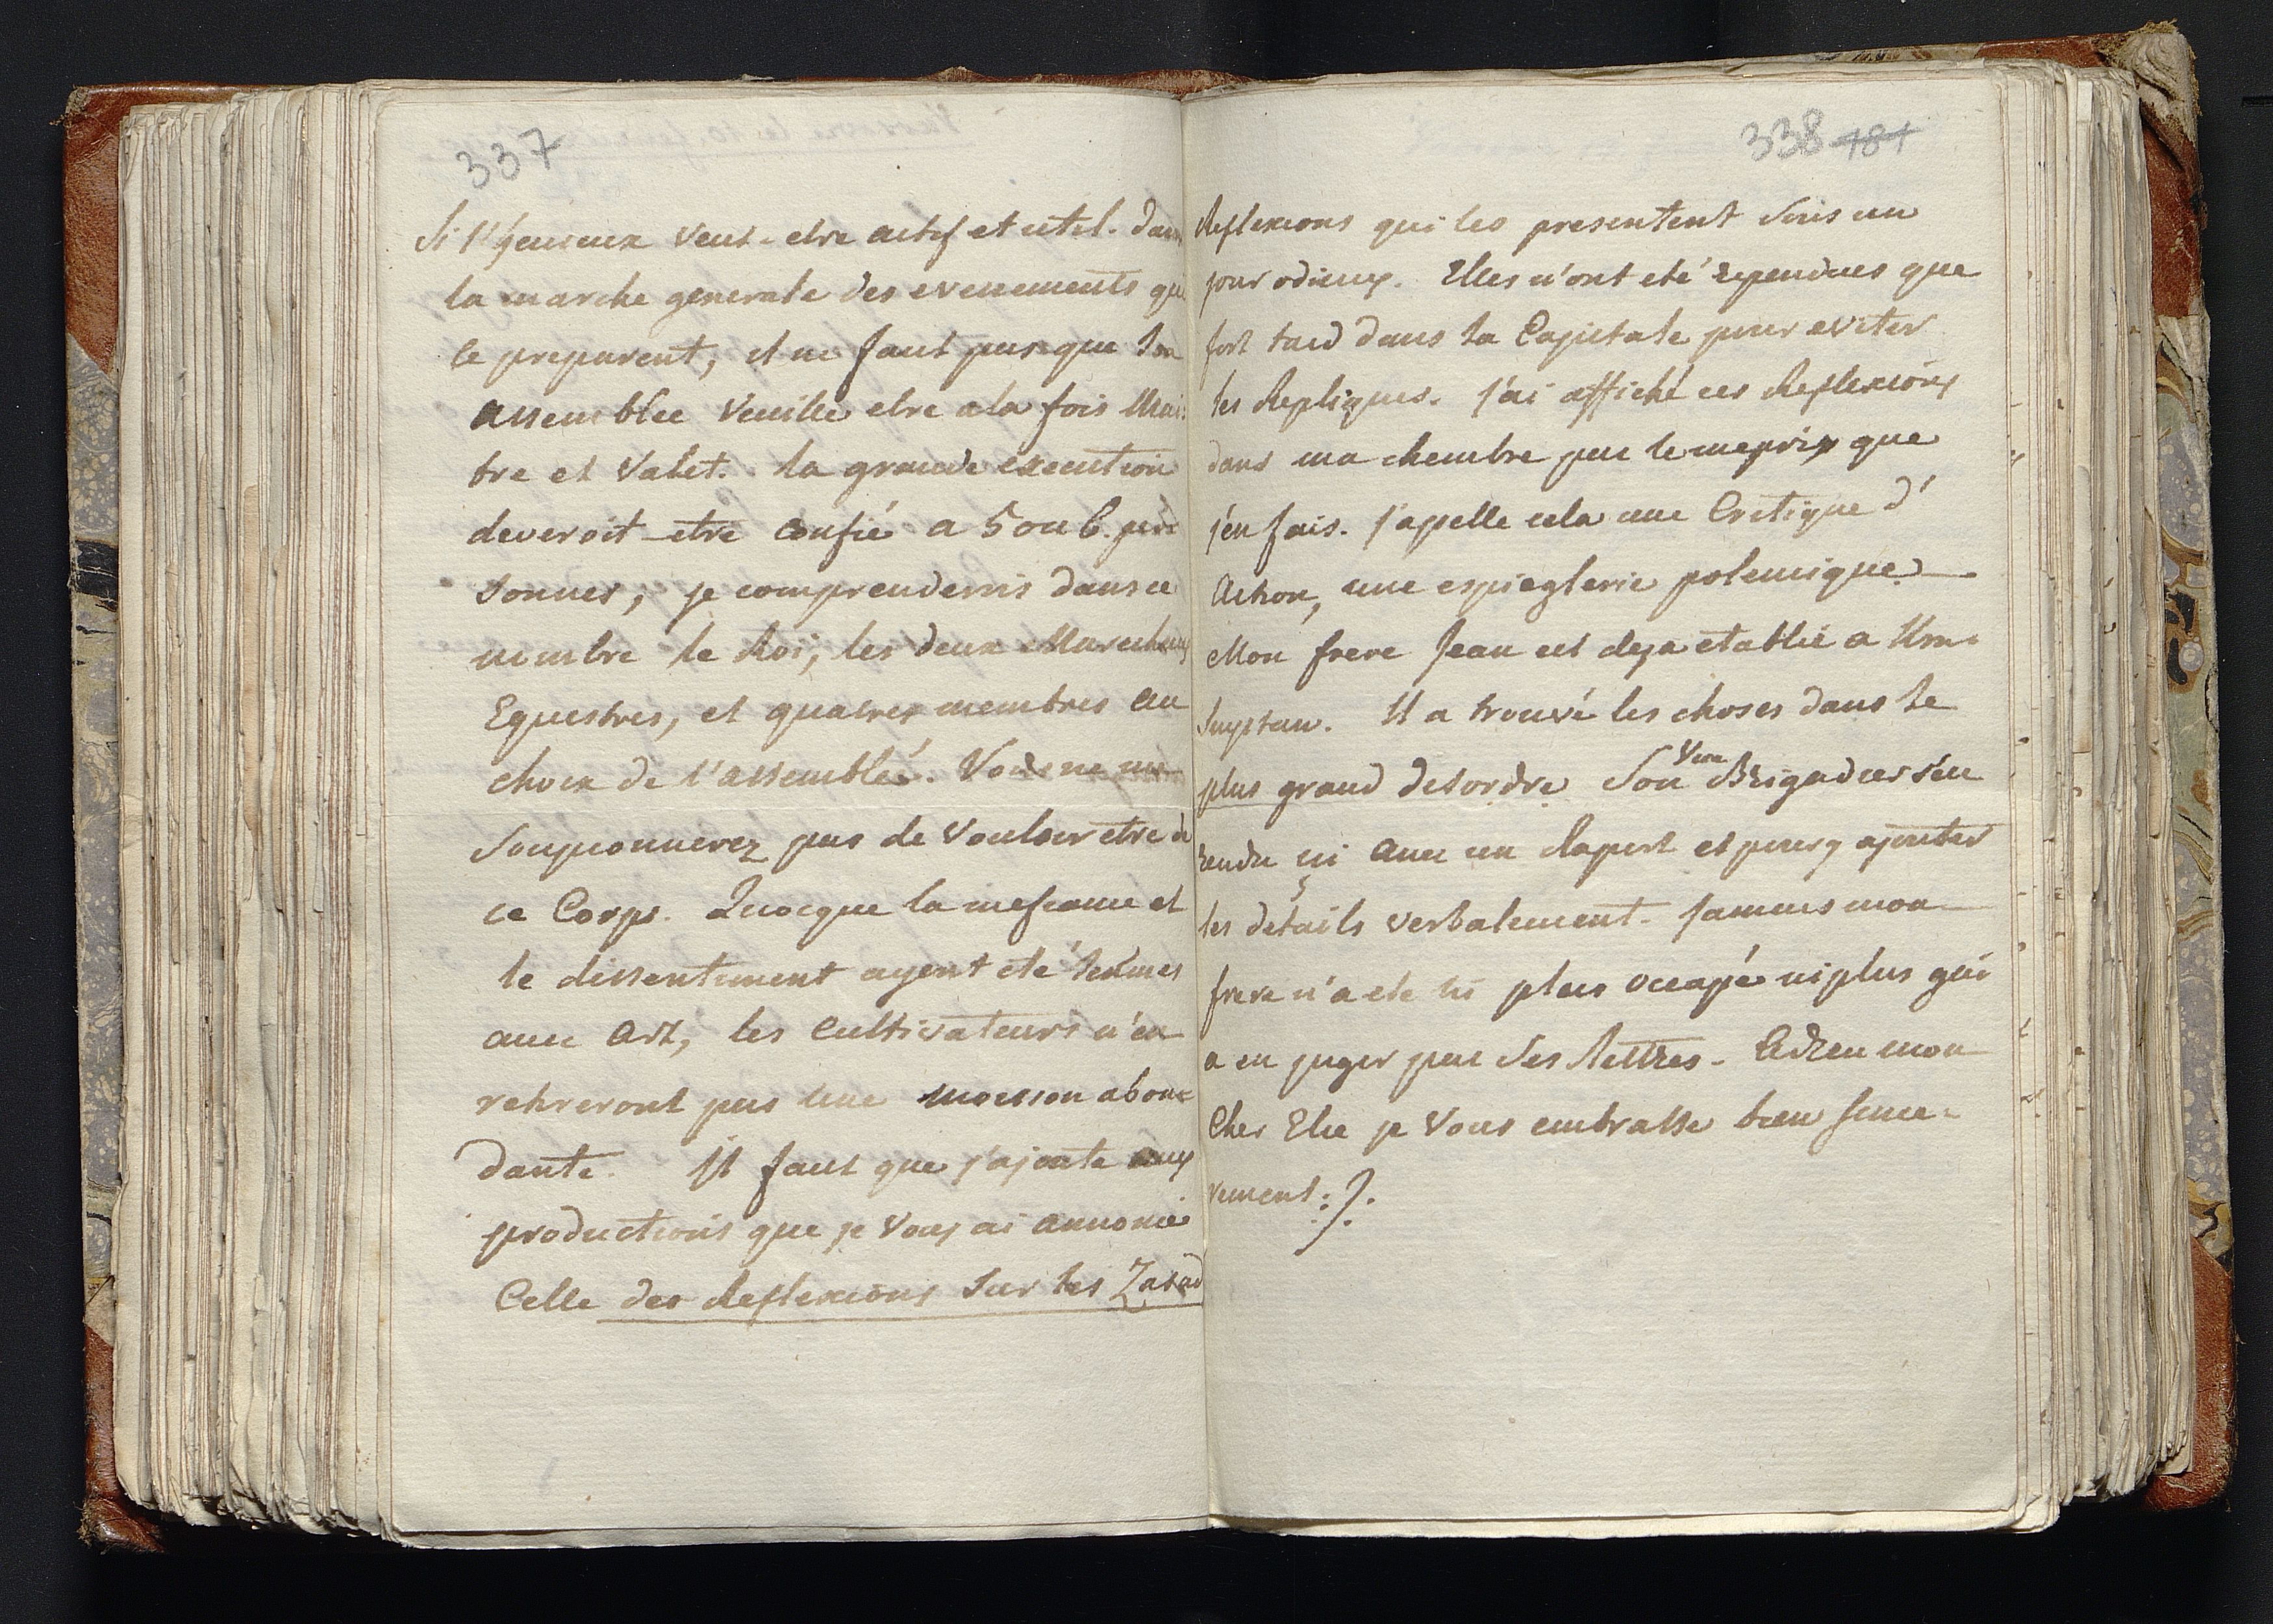 337
Si l'heureux veut-etre actif et util. dans
la marche generale des evenements qui
ce preparent, il ne faut pas que son
assemblee veuille etre a la fois Mai-
tre et Valet. la grande execution
deveroit etre confié a 5 ou 6. per
sonnes, je comprenderois dans ce
nombre le Roi, les deux Marechaux
Equestres, et quatres membres au
choix de l'assemblée. Vous ne me
soupconnerez pas de vouloir etre de
ce Corps. Quoique la mefiance et
le dissentiment ayent eté semés
avec art, les cultivateurs n'en
retireront pas une moisson abon-
dante. Il faut que j'ajoute aux
productions que je vous ai annoncé
Celle des Reflexions sur les Zasad
338 181
Reflexions qui les presentent sous un
jour odieux. Elles n'ont eté rependues que
fort tard dans la Capitale pour eviter
les Repliques. j'ai affiché ces Reflexions
dans ma chembre par le mepris que
j'en fais. j'apelle cela une Critique d'
Action, une espieglerie polemique.
Mon frere Jean est deja etablie a
. Il a trouvé les choses dans le
plus grand desordre Son Vice Brigadier s'en
rendu ici avec un Raport et pour y ajouter
les details verbalement. jamais mon
frere n'a ete ni plus occupé ni plus gai
a en juger par ses lettres. Adieu mon
Cher Elie je vous embrasse bien since-
rement :/.